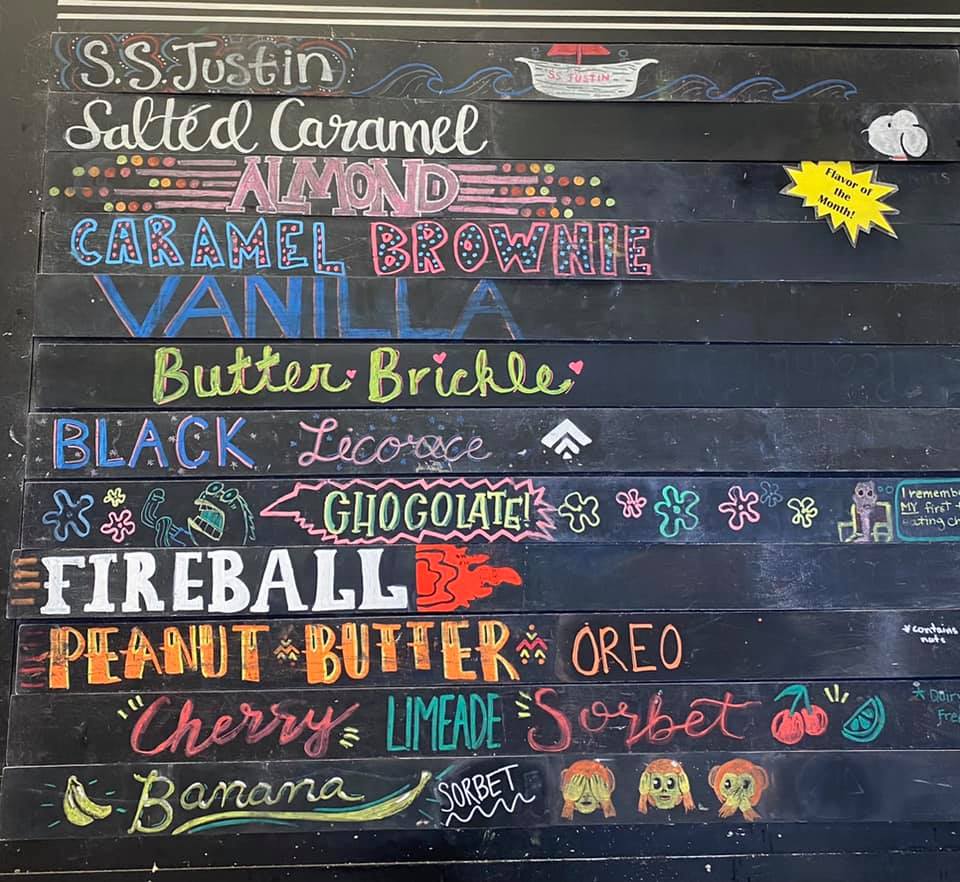 S.S. Justin SS JUSTIN
Salted Caramel
ALMOND
Flavor of
the
Month!
CARAMEL BROWNIE
VANILLA
Butter Brickle
BLACK Licorace
GHOGOLATE!
I remember
MY first
eating
FIREBALL
PEANUT BUTTER OREO
*contains
nuts
Cherry LIMEADE Sorbet
*Dairy
Free
Banana SORBET